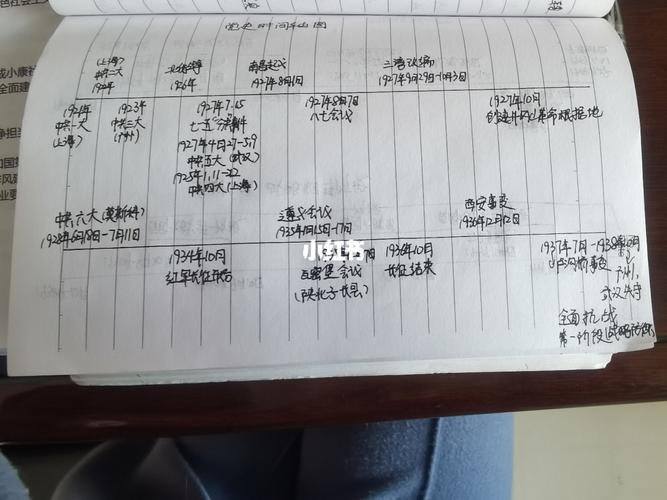 党史时间轴图
(上海)
中共二大
1922年
北伐战争
1926年
南昌起义
1927年8月1日
三湾改编
1927年9月29日-10月3日
1921年
中共一大
(上海)
1923年
中共三大
(广州)
1927年7.15
七一五分共事件
1927年4月27-5.9
中共五大(武汉)
1925年1.11-22
中共四大(上海)
1927年8月7日
八七会议
1927年10月
创建井冈山革命根据地
中共六大(莫斯科)
1928年6月18日-7月11日
遵义会议
1935年1月15日-17日
西安事变
1936年12月12日
1934年10月
红军长征开始
小红书
瓦窑堡会议
(陕北子长县)
1936年10月
长征结束
1937年7月
卢沟桥事变
1938年10月
广州、
武汉失守
全面抗战
第一阶段(战略防御)
小康社
全面建
争担当
和国